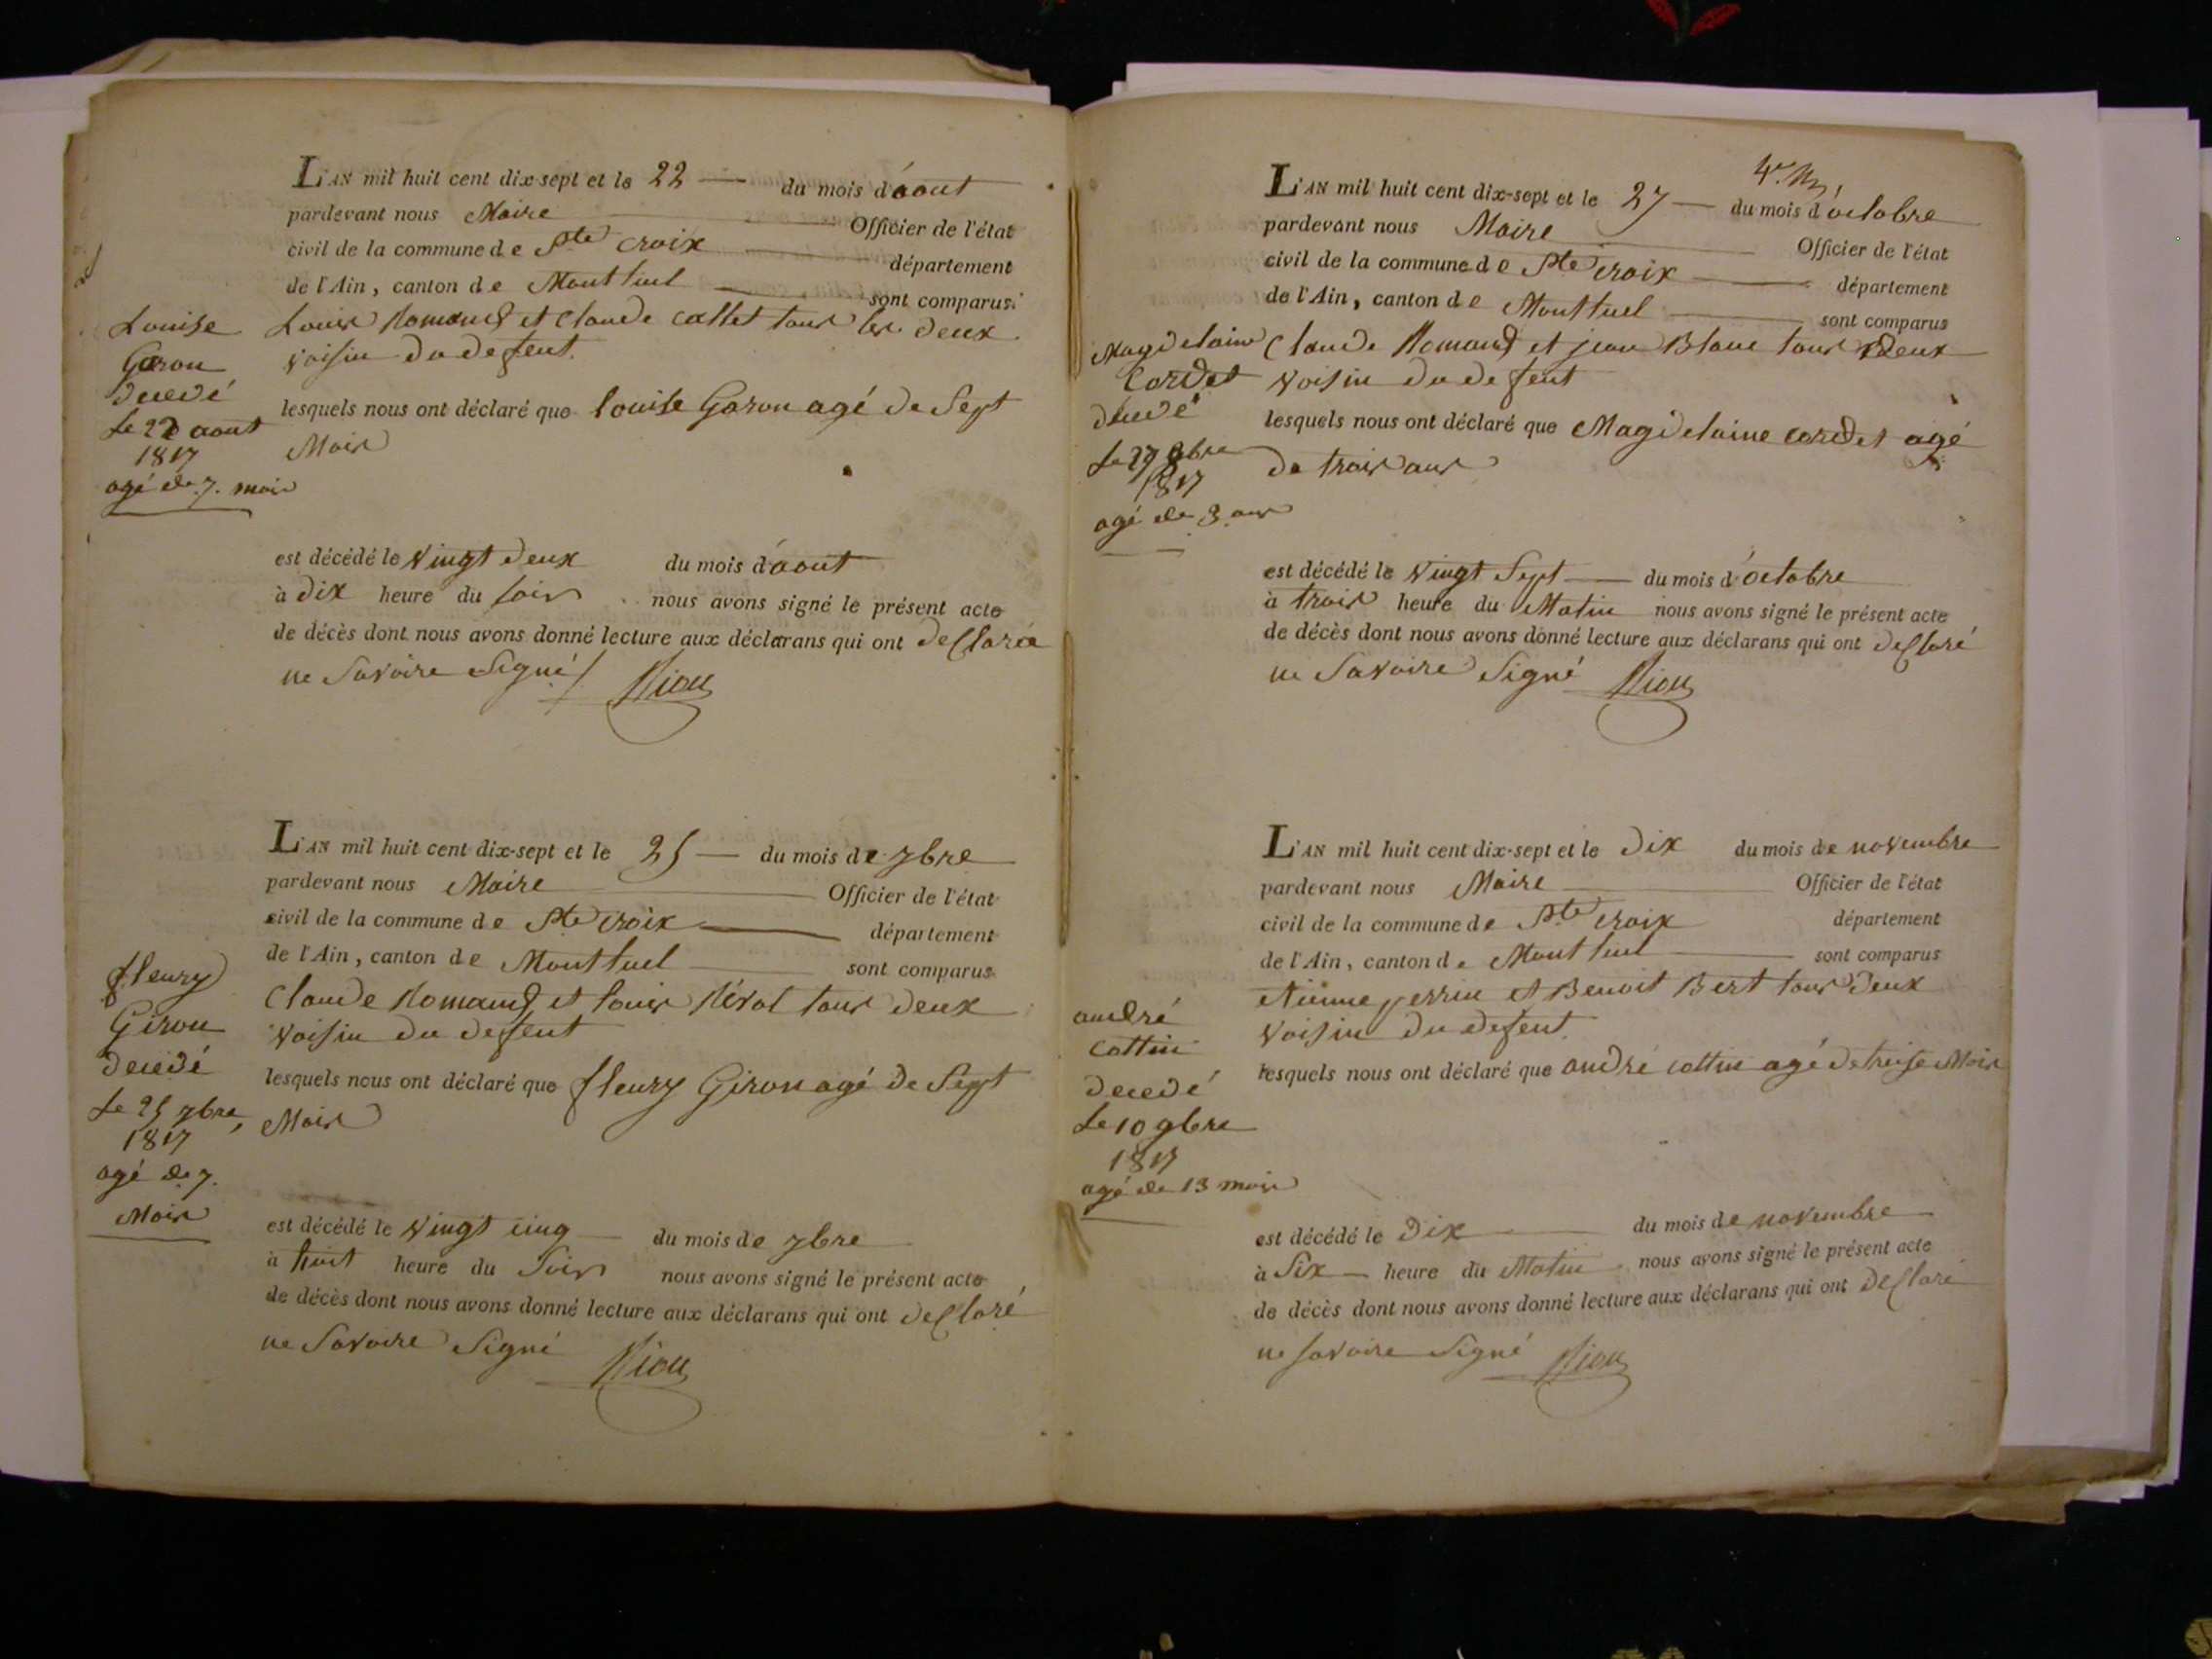 L'AN mil huit cent dix-sept et le 22 du mois d'aout
pardevant nous Maire Officier de l'état
civil de la commune de Ste croix département
de l'Ain, canton de Montluel sont comparus
Louis Romand et Claude Collet tous les deux
voisin du defent.
lesquels nous ont déclaré que louise Garon agé de Sept
Mois
Louise
Garon
decedé
Le 22 aout
1817
agé de 7. mois
est décédé le vingt deux du mois d'aout
à Dix heure du soir nous avons signé le présent acte
de décès dont nous avons donné lecture aux déclarans qui ont declarée
ne Savoire Signé Riou
L'AN mil huit cent dix-sept et le 25 du mois de 7bre
pardevant nous Maire Officier de l'état
civil de la commune de Ste croix département
de l'Ain, canton de Montluel sont comparus
Claude Romand et louis tous deux
voisin du defent
lesquels nous ont déclaré que fleury Giron agé de Sept
Mois
fleury
Giron
decedé
Le 25 7bre
1817
agé de 7.
Mois
est décédé le vingt cinq du mois de 7bre
à huit heure du Soir nous avons signé le présent acte
de décès dont nous avons donné lecture aux déclarans qui ont declaré
ne Savoire Signé Riou
L'AN mil huit cent dix-sept et le 27 du mois d'octobre
pardevant nous Maire Officier de l'état
civil de la commune de Ste croix département
de l'Ain, canton de Montluel sont comparus
Claude Romand et jean Blanc tous deux
voisin du defent
lesquels nous ont déclaré que Magdelaine cordet agé
de trois ans
Magdelaine
Cordet
decedé
Le 27 8bre
1817
agé de 3 ans
est décédé le vingt Sept du mois d'octobre
à trois heure du Matin nous avons signé le présent acte
de décès dont nous avons donné lecture aux déclarans qui ont declaré
ne Savoire Signé Riou
L'AN mil huit cent dix-sept et le Dix du mois de novembre
pardevant nous Maire Officier de l'état
civil de la commune de Ste croix département
de l'Ain, canton de Montluel sont comparus
etienne perrin et Benoit Bert tous deux
voisin du defent.
lesquels nous ont déclaré que andré cottin agé de treise Mois
andré
cottin
decedé
Le 10 9bre
1817
agé de 13 mois
est décédé le Dix du mois de novembre
à Six heure du Matin nous avons signé le présent acte
de décès dont nous avons donné lecture aux déclarans qui ont declaré
ne savoire Signé Riou